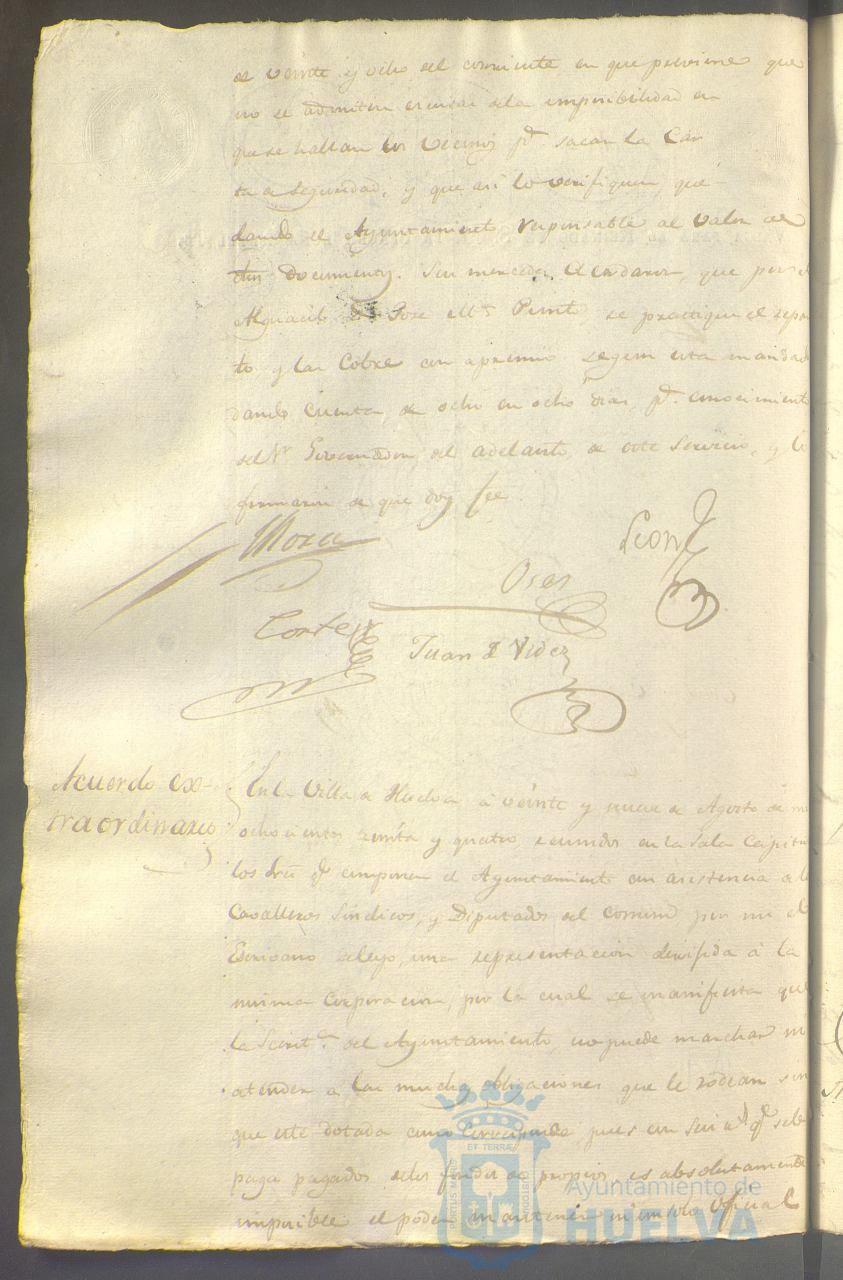 de veinte y ocho del corriente en que previene que
no se admiten escusas dela imposibilidad en
que se hallan los vecinos pª sacar la Car
ta de seguridad, y que asi lo verifiquen, que
dando el Ayuntamiento responsable al valor de
dhos documentos. Sus mercedes Acordaron, que por el
Alguacil José Mª Pinto se practique el repar
to, y las Cobre con apremio segun esta mandado
dando Cuenta, de ocho en ocho dias, pª conocimiento
del Sr Governador, del adelanto de este Servicio, y lo
firmaron de que doy fee.
Mora
Leon
Oses
Cortes
Juan
Acuerdo ex-
traordinario
En la Villa de Huelva á veinte y nueve de Agosto de mil
ochocientos treinta y quatro, reunidos en la Sala Capitu
los Sres qe componen el Ayuntamiento con asistencia de los
Cavalleros Sindicos, y Diputados del Comun por mi el
Escribano se leyo una representacion dirigida á la
misma Corporacion, por la cual se manifiesta que
la Secretª del Ayuntamiento, no puede marchar ni
atender a las muchas obligaciones que le rodean sin
que este dotada como corresponde, pues con seis qe se le
paga pagados delos fondos de propios es absolutamente
imposible el poder mantener ni un solo Oficial
ET TERRÆ
PORTUS MARIS
CUSTODIA
Ayuntamiento de
HUELVA